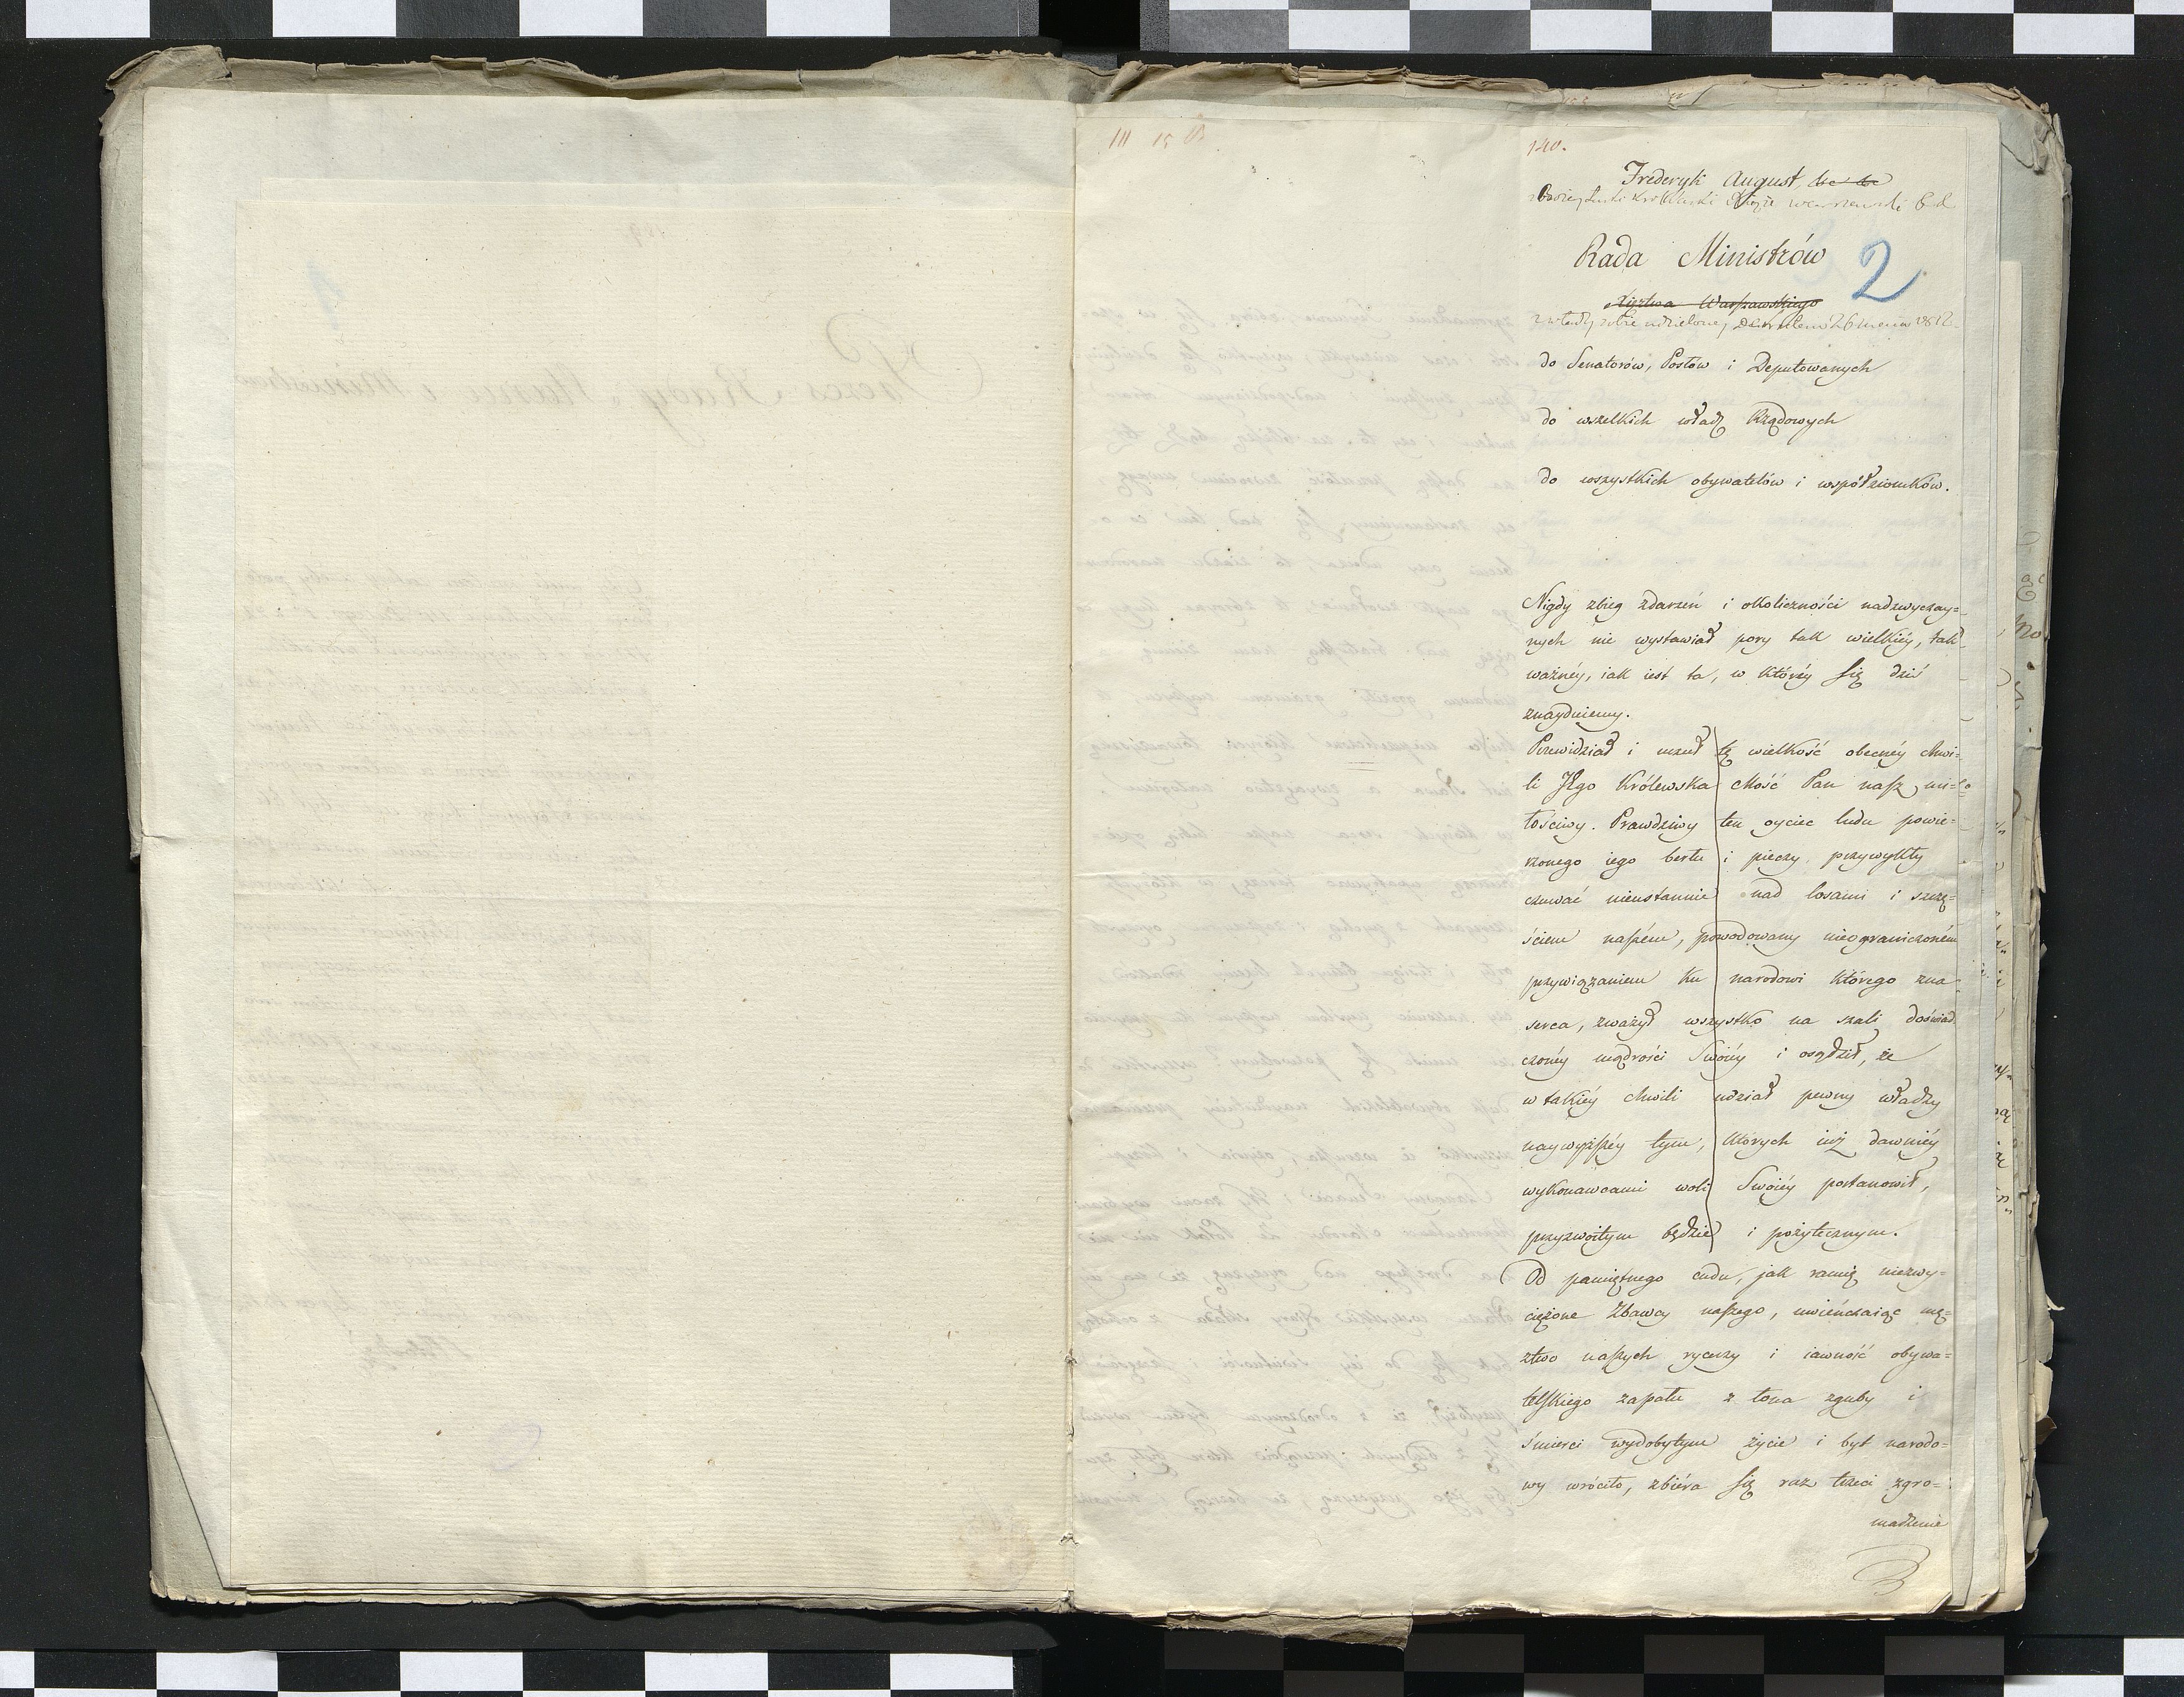 III 15
140.
Frederyk August, &c &c
z Bożey Łaski Krol Saski Xiąże warszawski &c &c
Rada Ministrów
2
Xięztwa Warszawskiego
z władzy sobie udzieloney Dekretem 26 1812.
do Senatorów, Posłów i Deputowanych
do wszelkich władz Rządowych
do wszystkich obywatelów i współziomków.
Nigdy zbieg zdarzeń i okoliczności nadzwyczay=
nych nie wystawiał pory tak wielkiéy, tak
ważnéy, iak iest ta, w któréy się dziś
znayduiemy.
Przewidział i uczuł tę wielkość obecnéy chwi=
li Jego Królewska Mość Pan nasz mi=
łościwy. Prawdziwy ten oyciec ludu powie=
rzonego iego berłu i pieczy przywykły
czuwać nieustannie nad losami i szczę=
ściem naszém, powodowany nieograniczoném
przywiązaniem ku narodowi którego zna
serca, zważył wszystko na szali doświad
czonéy mądrości Swoiéy i osądził, że
w takiéy chwili udział pewny władzy
naywyższéy tym, których iuż dawniéy
wykonawcami woli Swoiéy postanowił,
przyzwoitym będzie i pożytecznym.
Od pamiętnego cudu, jak ramię niezwy=
ciężone Zbawcy naszego, uwieńczaiąc mę=
ztwo naszych rycerzy i iawność obywa=
telskiego zapału z łona zguby i
śmierci wydobytym życie i byt narodo=
wy wróciło, zbiéra się raz trzeci zgro=
madzenie